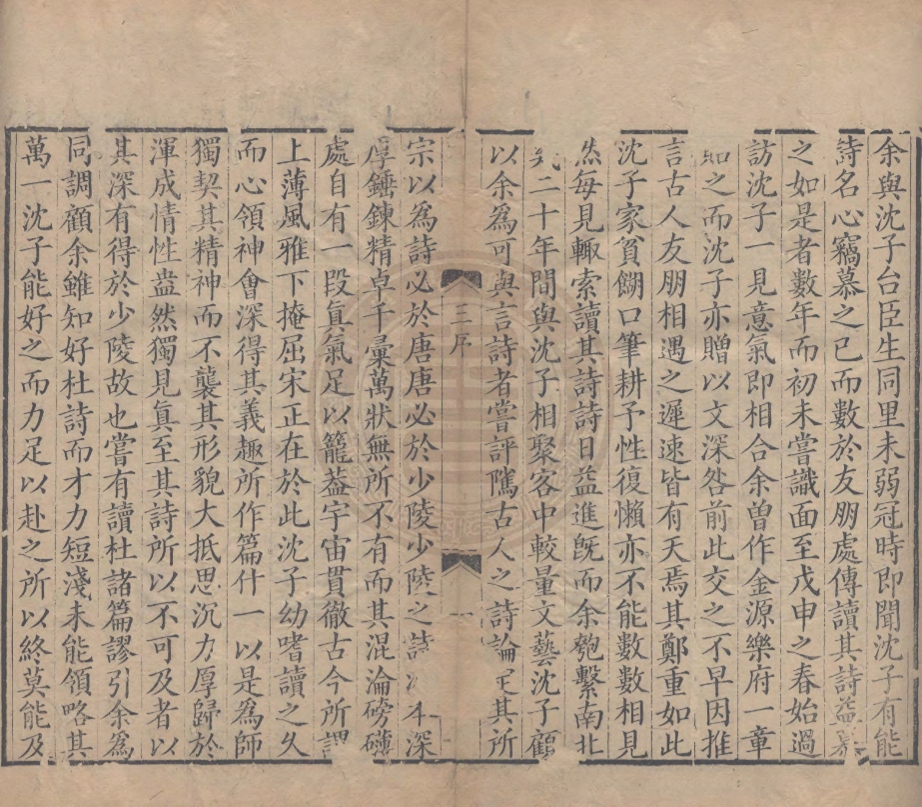 余與沈子台臣生同里未弱冠時即聞沈子有能
詩名心竊慕之已而數於友朋處傳讀其詩益慕
之如是者數年而初未嘗識面至戊申之春始過
訪沈子一見意氣即相合余曾作金源樂府一章
之而沈子亦贈以文深咎前此交之不早因推
言古人友朋相遇之遲速皆有天焉其鄭重如此
沈子家貧餬口筆耕予性復懶亦不能數數相見
然每見輒索讀其詩詩日益進既而余匏繫南北
二十年間與沈子相聚客中較量文藝沈子顧
以余為可與言詩者嘗評隲古人之詩論定其所
三序
一
宗以為詩必於唐唐必於少陵少陵之詩深
厚錘鍊精卓千彙萬狀無所不有而其混淪磅礴
處自有一段眞氣足以籠葢宇宙貫徹古今所謂
上薄風雅下掩屈宋正在於此沈子幼嗜讀之久
而心領神會深得其義趣所作篇什一以是為師
獨契其精神而不襲其形貌大抵思沉力厚歸於
渾成情性盎然獨見眞至其詩所以不可及者以
其深有得於少陵故也嘗有讀杜諸篇謬引余為
同調顧余雖知好杜詩而才力短淺未能領略其
萬一沈子能好之而力足以赴之所以終莫能及